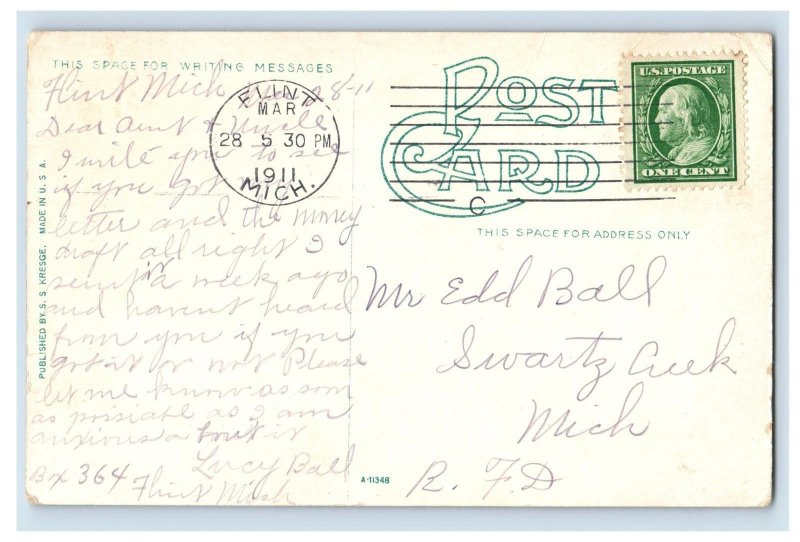 THIS SPACE FOR WRITING MESSAGES
Flint Mich Mar 28-11
Dear Aunt & Uncle
I write you to see
if you got
letter and the money
draft all right I
sent in a week ago
and havent heard
from you if you
got it or not Please
let me know as soon
as possiable as I am
anxious a bout it
Lucy Ball
Box 364
Flint Mich
FLINT
MAR
28 5 30 PM
1911
MICH.
POST
CARD
C
U.S. POSTAGE
ONE CENT
THIS SPACE FOR ADDRESS ONLY
Mr Edd Ball
Swartz Creek
Mich
R. F. D
PUBLISHED BY S. S. KRESGE. MADE IN U. S. A.
A-11348